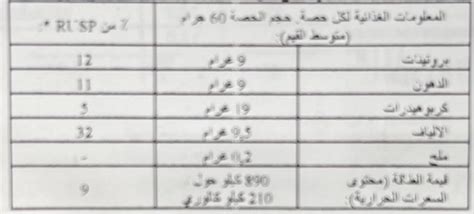 المعلومات الغذائية لكل حصة, حجم الحصة 60 جرام
(متوسط القيم): ٪ من RI*SP *:
بروتينات 9 غرام 12
الدهون 9 غرام 11
كربوهيدرات 19 غرام 5
الألياف 9,5 غرام 32
ملح 0,2 غرام -
قيمة الطاقة (محتوى 890 كيلو جول
السعرات الحرارية): 210 كيلو كالوري 9